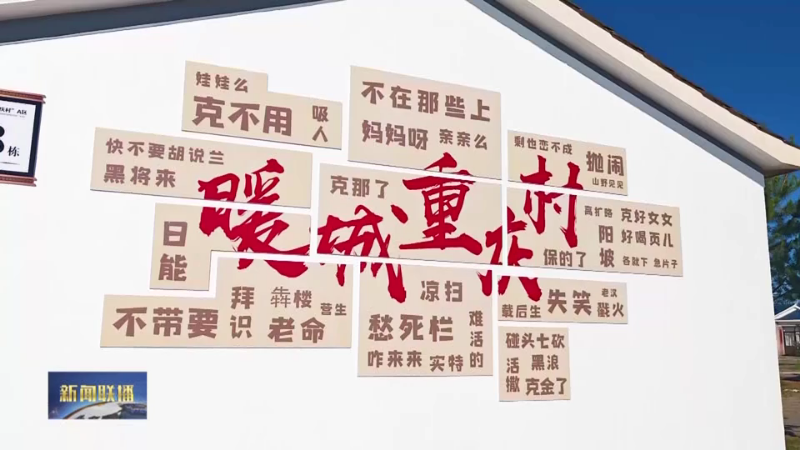 娃娃么
克不用
吸人
不在那些上
妈妈呀 亲亲么
剩也恋不成
抛闹
山野见见
快不要胡说兰
黑将来
克那了
暖城重庆村
高扩路
阳坡
克好女女
好喝页儿
保的了
各就下 急片子
日能
不带要
拜识
犇楼
营生
老命
凉扫
愁死栏
难活的
咋来来 实特
载后生
失笑
老汉
毁火
碰头七砍
活撒
黑浪
克金了
栋
新闻联播